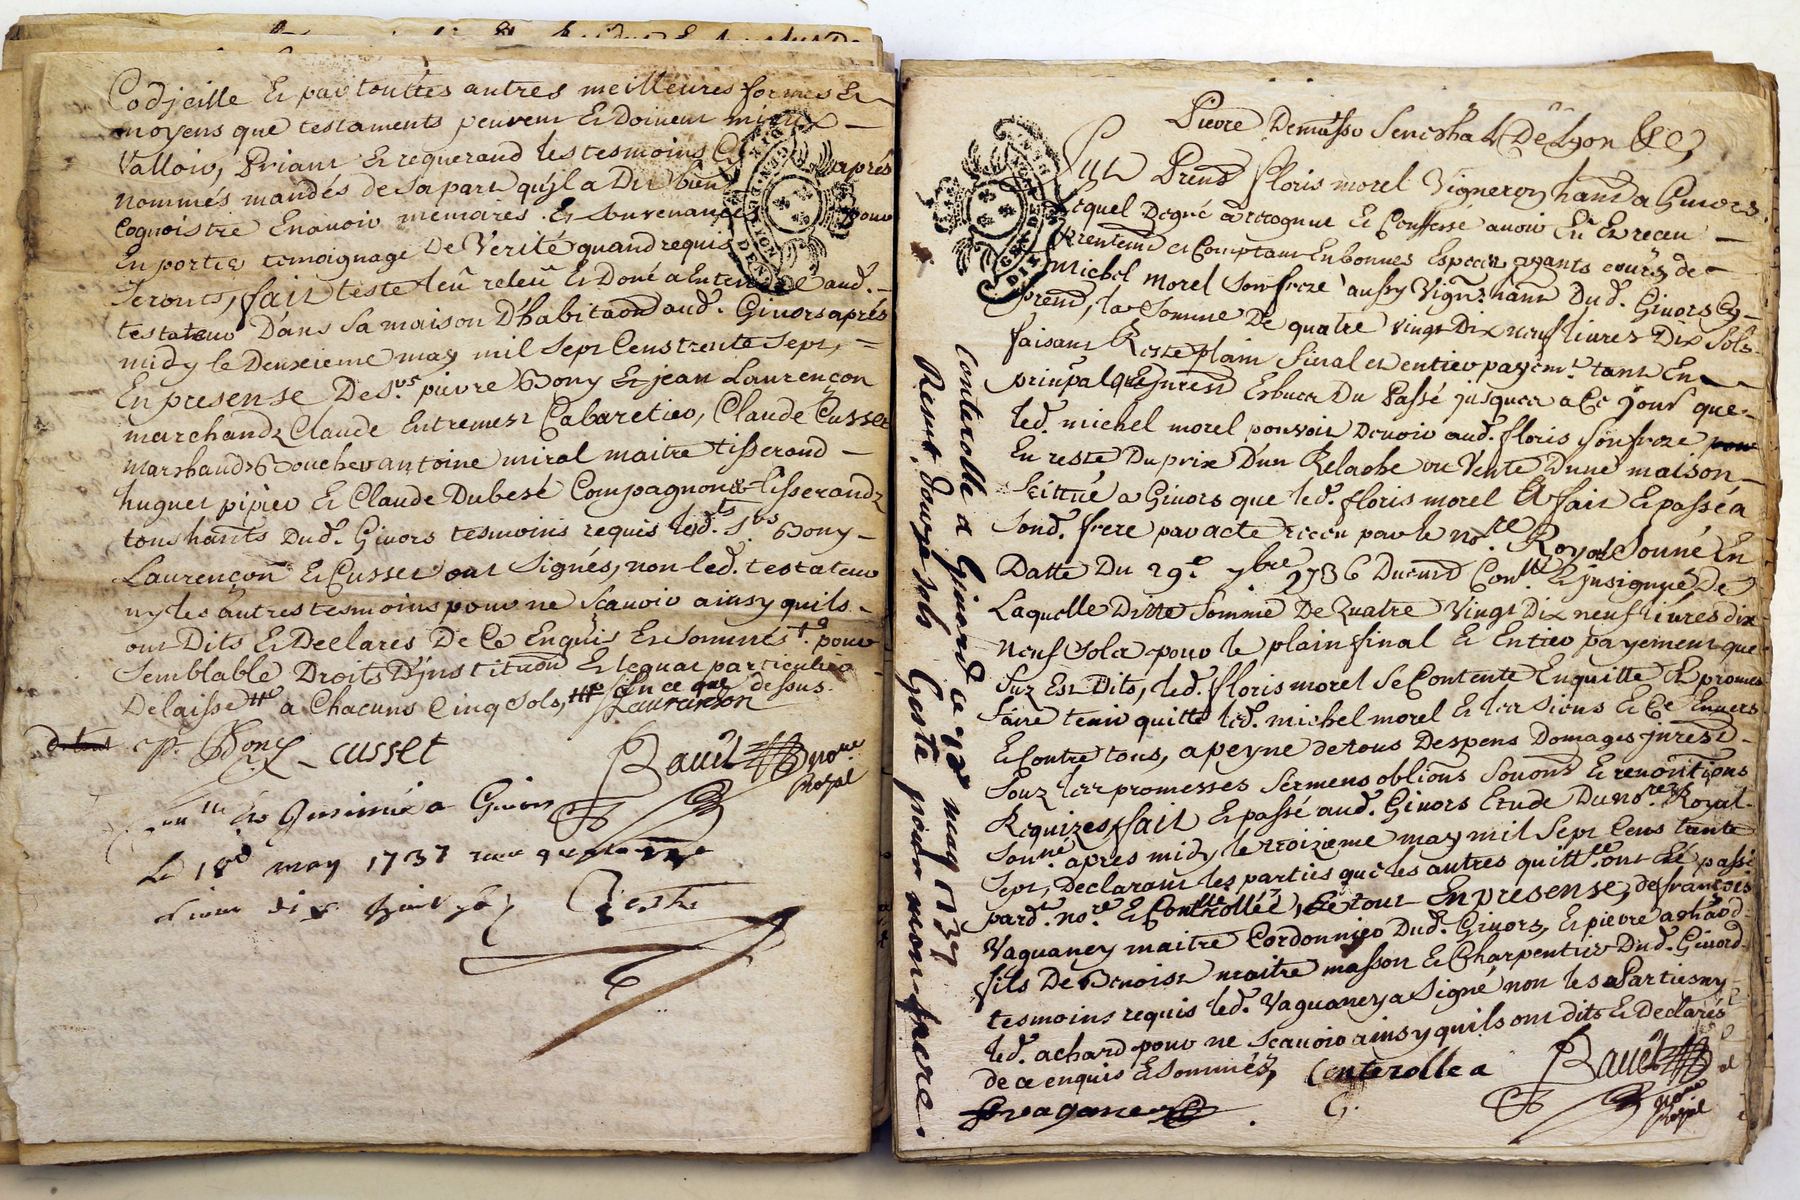 Codicille Et par touttes autres meilleures formes Et
moyens que testaments peuvent Et Doivent mieux
Valloir, Priant Et requerand les tesmoins Cy après
nommés mandés de Sa part qu'jl a Dit bien
Cognoistre En avoir memoires Et Souvenances pour
En porter temoignage De Verité quand requis
Seronts, fait leste leû releû Et Doné a Entendre aud.
testateur Dans Sa maison D'habitaon aud. Givors aprés
midy le Deuxieme may mil Sept Cens trente Sept,
En presense De Srs pierre Bony Et jean Laurençon
marchands Claude Entremest Cabaretier, Claude Cusset
Marchand Boucher antoine miral maitre tisserand
huguet pipier Et Claude Dubesé Compagnons tisserands
tous hants Dud. Givors tesmoins requis lesd.ts Srs Bony
Laurençon Et Cusset ont Signés, non led. testateur
ny les autres tesmoins pour ne Scavoir ainsy quils
ont Dits Et Declarés De Ce Enquis Et Sommés pour
Semblable Droits D'jnstitution Et leguat particulier
Delaisse a Chacuns Cinq Sols, En ce que dessus.
Laurançon
P. Bony cusset Ravit nore
Royal
a Givors
Le 18e may 1737
livres dix huit Geste
Pierre Senechal De Lyon
floris morel Vigneron hant a Givors
lequel Degré a recognut Et Confessé avoir Eu Et receu
Et Comptant En bonnes Especes ayants cours de
michel morel Son frere aussy Vign. hant Dud. Givors Cy
prent, la Somme De quatre vingt Dix neuf livres Dix Sols
faisant Reste plain final et entier payemt. tant En
prinsipal que jnrest Et bucz Du Passé jusques a Ce jour que
led. michel morel pouvoit Devoir aud. floris Son frere
En reste Du prix D'un Relache ou Vente D'une maison
Scittué a Givors que led. floris morel A fait Et passé a
Sond. frere par acte receu par le nore. Royal Sonné En
Datte Du 29e. 7bre 1736 Duemt Conllé Et jnsignué De
Laquelle Ditte Somme De Quatre Vingt Dix neuf livres dix
neuf Sols pour le plain final Et Entier payement que
Suz Est Dits, led. floris morel Se Contente En quitte Et promet
faire tenir quitte led. michel morel Et les Siens Et Ce Envers
Et Contre tous, a peyne de tous Despens Domages jnrest
Souz les promesses Sermens oblions Sonons Et renontions
Requizes, fait Et passé aud. Givors Etude Du nore Royal
Sonné apres midy le troizieme may mil Sept Cens trente
Sept, Declarant les parties que les autres quitt.ce ont Eté passé
pard. nore. Et Conterollée, Et tout En presense, de françois
Vaguaney maitre Cordonnier Dud. Givors, Et pierre achard
fils De Benoist maitre masson Et Charpentier Dud. Givors
tesmoins requis led. Vaguaney a Signé non les Parties ny
led. achard pour ne Scavoir ainsy quils ont dits Et Declarés
de ce enquis Et Sommés, Conterolle a
G. Ravit nore
Royal
f vaganey
Conterolle a Givord ce 18 may 1737
Resut douze sols Geste pour mon frere.